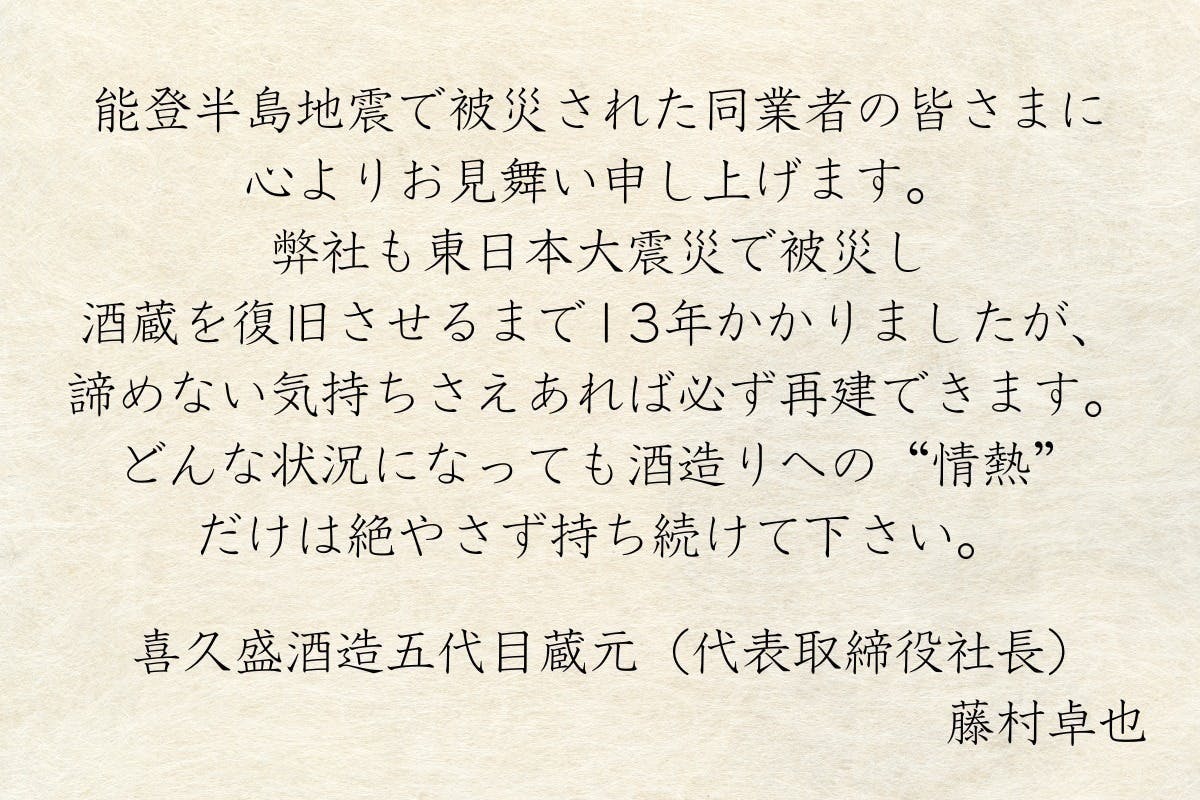 能登半島地震で被災された同業者の皆さまに
心よりお見舞い申し上げます。
弊社も東日本大震災で被災し
酒蔵を復旧させるまで13年かかりましたが、
諦めない気持ちさえあれば必ず再建できます。
どんな状況になっても酒造りへの“情熱”
だけは絶やさず持ち続けて下さい。
喜久盛酒造五代目蔵元（代表取締役社長）
藤村卓也